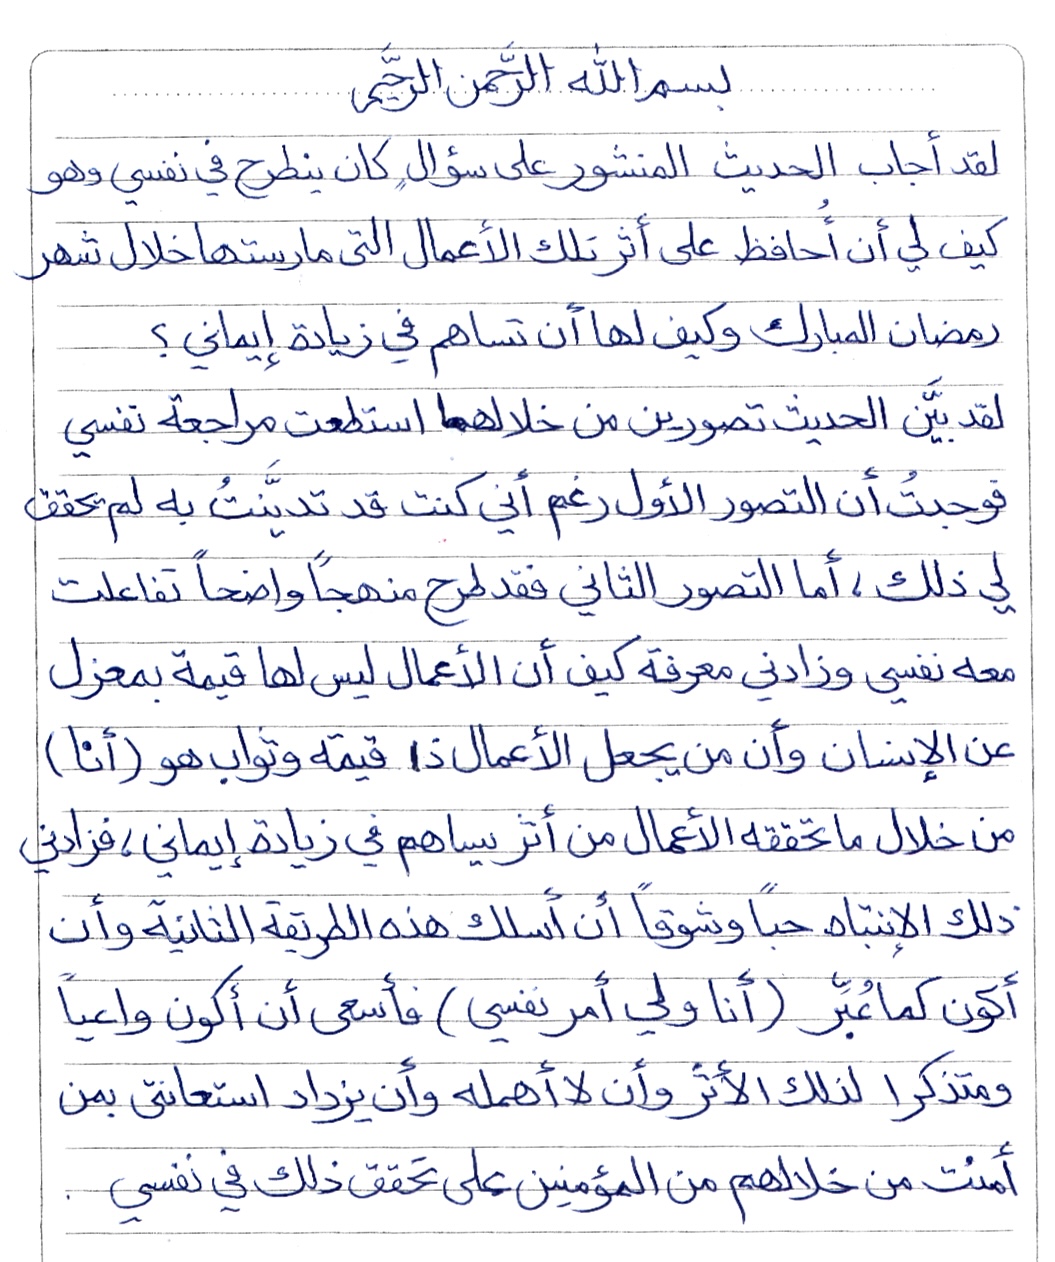 بسم الله الرَّحمن الرَّحيم
لقد أجاب الحديث المنشور على سؤالٍ كان ينطرح في نفسي وهو
كيف لي أن أُحافظ على أثر تلك الأعمال التي مارستها خلال شهر
رمضان المبارك وكيف لها أن تساهم في زيادة إيماني ؟
لقد بيَّن الحديث تصورين من خلالهما استطعت مراجعة نفسي
فوجدتُ أن التصور الأول رغم أني كنت قد تديَّنتُ به لم تحقق
لي ذلك ، أما التصور الثاني فقد طرح منهجاً واضحاً تفاعلت
معه نفسي وزادني معرفة كيف أن الأعمال ليس لها قيمة بمعزل
عن الإنسان وأن من يجعل الأعمال ذا قيمة وثواب هو (أنا)
من خلال ما تحققه الأعمال من أثر يساهم في زيادة إيماني ، فزادني
ذلك الإنتباه حباً وشوقاً أن أسلك هذه الطريقة الثانية وأن
أكون كما عُبِّر (أنا ولي أمر نفسي) فأسعى أن أكون واعياً
ومتذكرا لذلك الأثر وأن لا أهمله وأن يزداد استعانتي بمن
أمنت من خلالهم من المؤمنين على تحقق ذلك في نفسي .